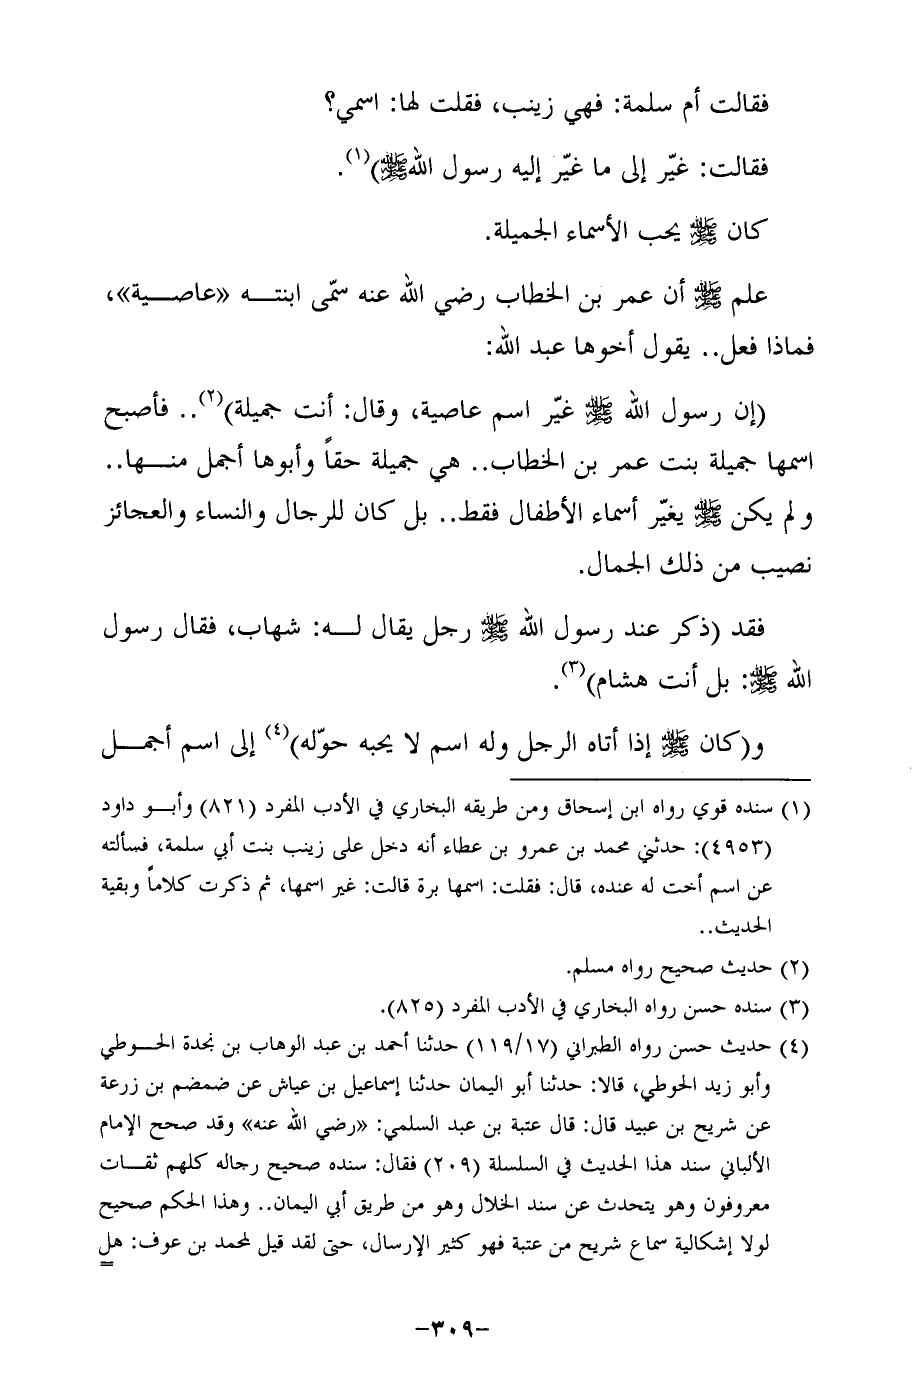 فقالت أم سلمة: فهي زينب، فقلت لها: اسمي؟
فقالت: غيّر إلى ما غيّر إليه رسول الله ﷺ)(١).
كان ﷺ يحب الأسماء الجميلة.
علم ﷺ أن عمر بن الخطاب رضي الله عنه سمّى ابنتـه «عاصـية»،
فماذا فعل.. يقول أخوها عبد الله:
(إن رسول الله ﷺ غيّر اسم عاصية، وقال: أنت جميلة)(٢).. فأصبح
اسمها جميلة بنت عمر بن الخطاب.. هي جميلة حقاً وأبوها أجمل منـها..
ولم يكن ﷺ يغيّر أسماء الأطفال فقط.. بل كان للرجال والنساء والعجائز
نصيب من ذلك الجمال.
فقد (ذكر عند رسول الله ﷺ رجل يقال لـه: شهاب، فقال رسول
الله ﷺ: بل أنت هشام)(٣).
و(كان ﷺ إذا أتاه الرجل وله اسم لا يحبه حوّله)(٤) إلى اسم أجمـل
(١) سنده قوي رواه ابن إسحاق ومن طريقه البخاري في الأدب المفرد (٨٢١) وأبـو داود
(٤٩٥٣): حدثني محمد بن عمرو بن عطاء أنه دخل على زينب بنت أبي سلمة، فسألته
عن اسم أخت له عنده، قال: فقلت: اسمها برة قالت: غير اسمها، ثم ذكرت كلاماً وبقية
الحديث..
(٢) حديث صحيح رواه مسلم.
(٣) سنده حسن رواه البخاري في الأدب المفرد (٨٢٥).
(٤) حديث حسن رواه الطبراني (١١٩/١٧) حدثنا أحمد بن عبد الوهاب بن نجدة الحـوطي
وأبو زيد الحوطي، قالا: حدثنا أبو اليمان حدثنا إسماعيل بن عياش عن ضمضم بن زرعة
عن شريح بن عبيد قال: قال عتبة بن عبد السلمي: «رضي الله عنه» وقد صحح الإمام
الألباني سند هذا الحديث في السلسلة (٢٠٩) فقال: سنده صحيح رجاله كلهم ثقـات
معروفون وهو يتحدث عن سند الخلال وهو من طريق أبي اليمان.. وهذا الحكم صحيح
لولا إشكالية سماع شريح من عتبة فهو كثير الإرسال، حتى لقد قيل لمحمد بن عوف: هل
=
-٣٠٩-